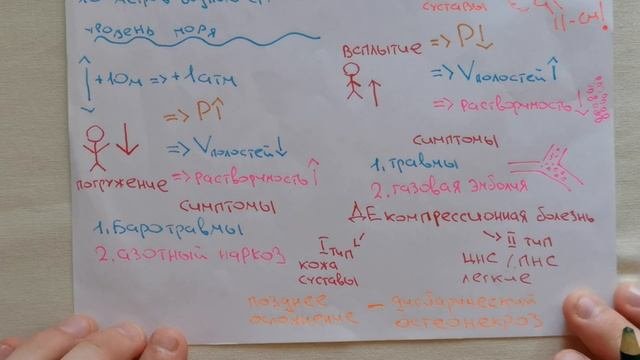 уровень моря
+10м => +1атм
=> P↑
=> Vполостей↓
погружение => растворимость↑
симптомы
1. Баротравмы
2. азотный наркоз
суставы
II-см!
всплытие => P↓
=> Vполостей↑
=> растворимость↓
симптомы
1. травмы
2. газовая эмболия
ДЕкомпрессионная болезнь
I тип
кожа
суставы
II тип
ЦНС / ПНС
легкие
позднее осложнение – дисбарический остеонекроз